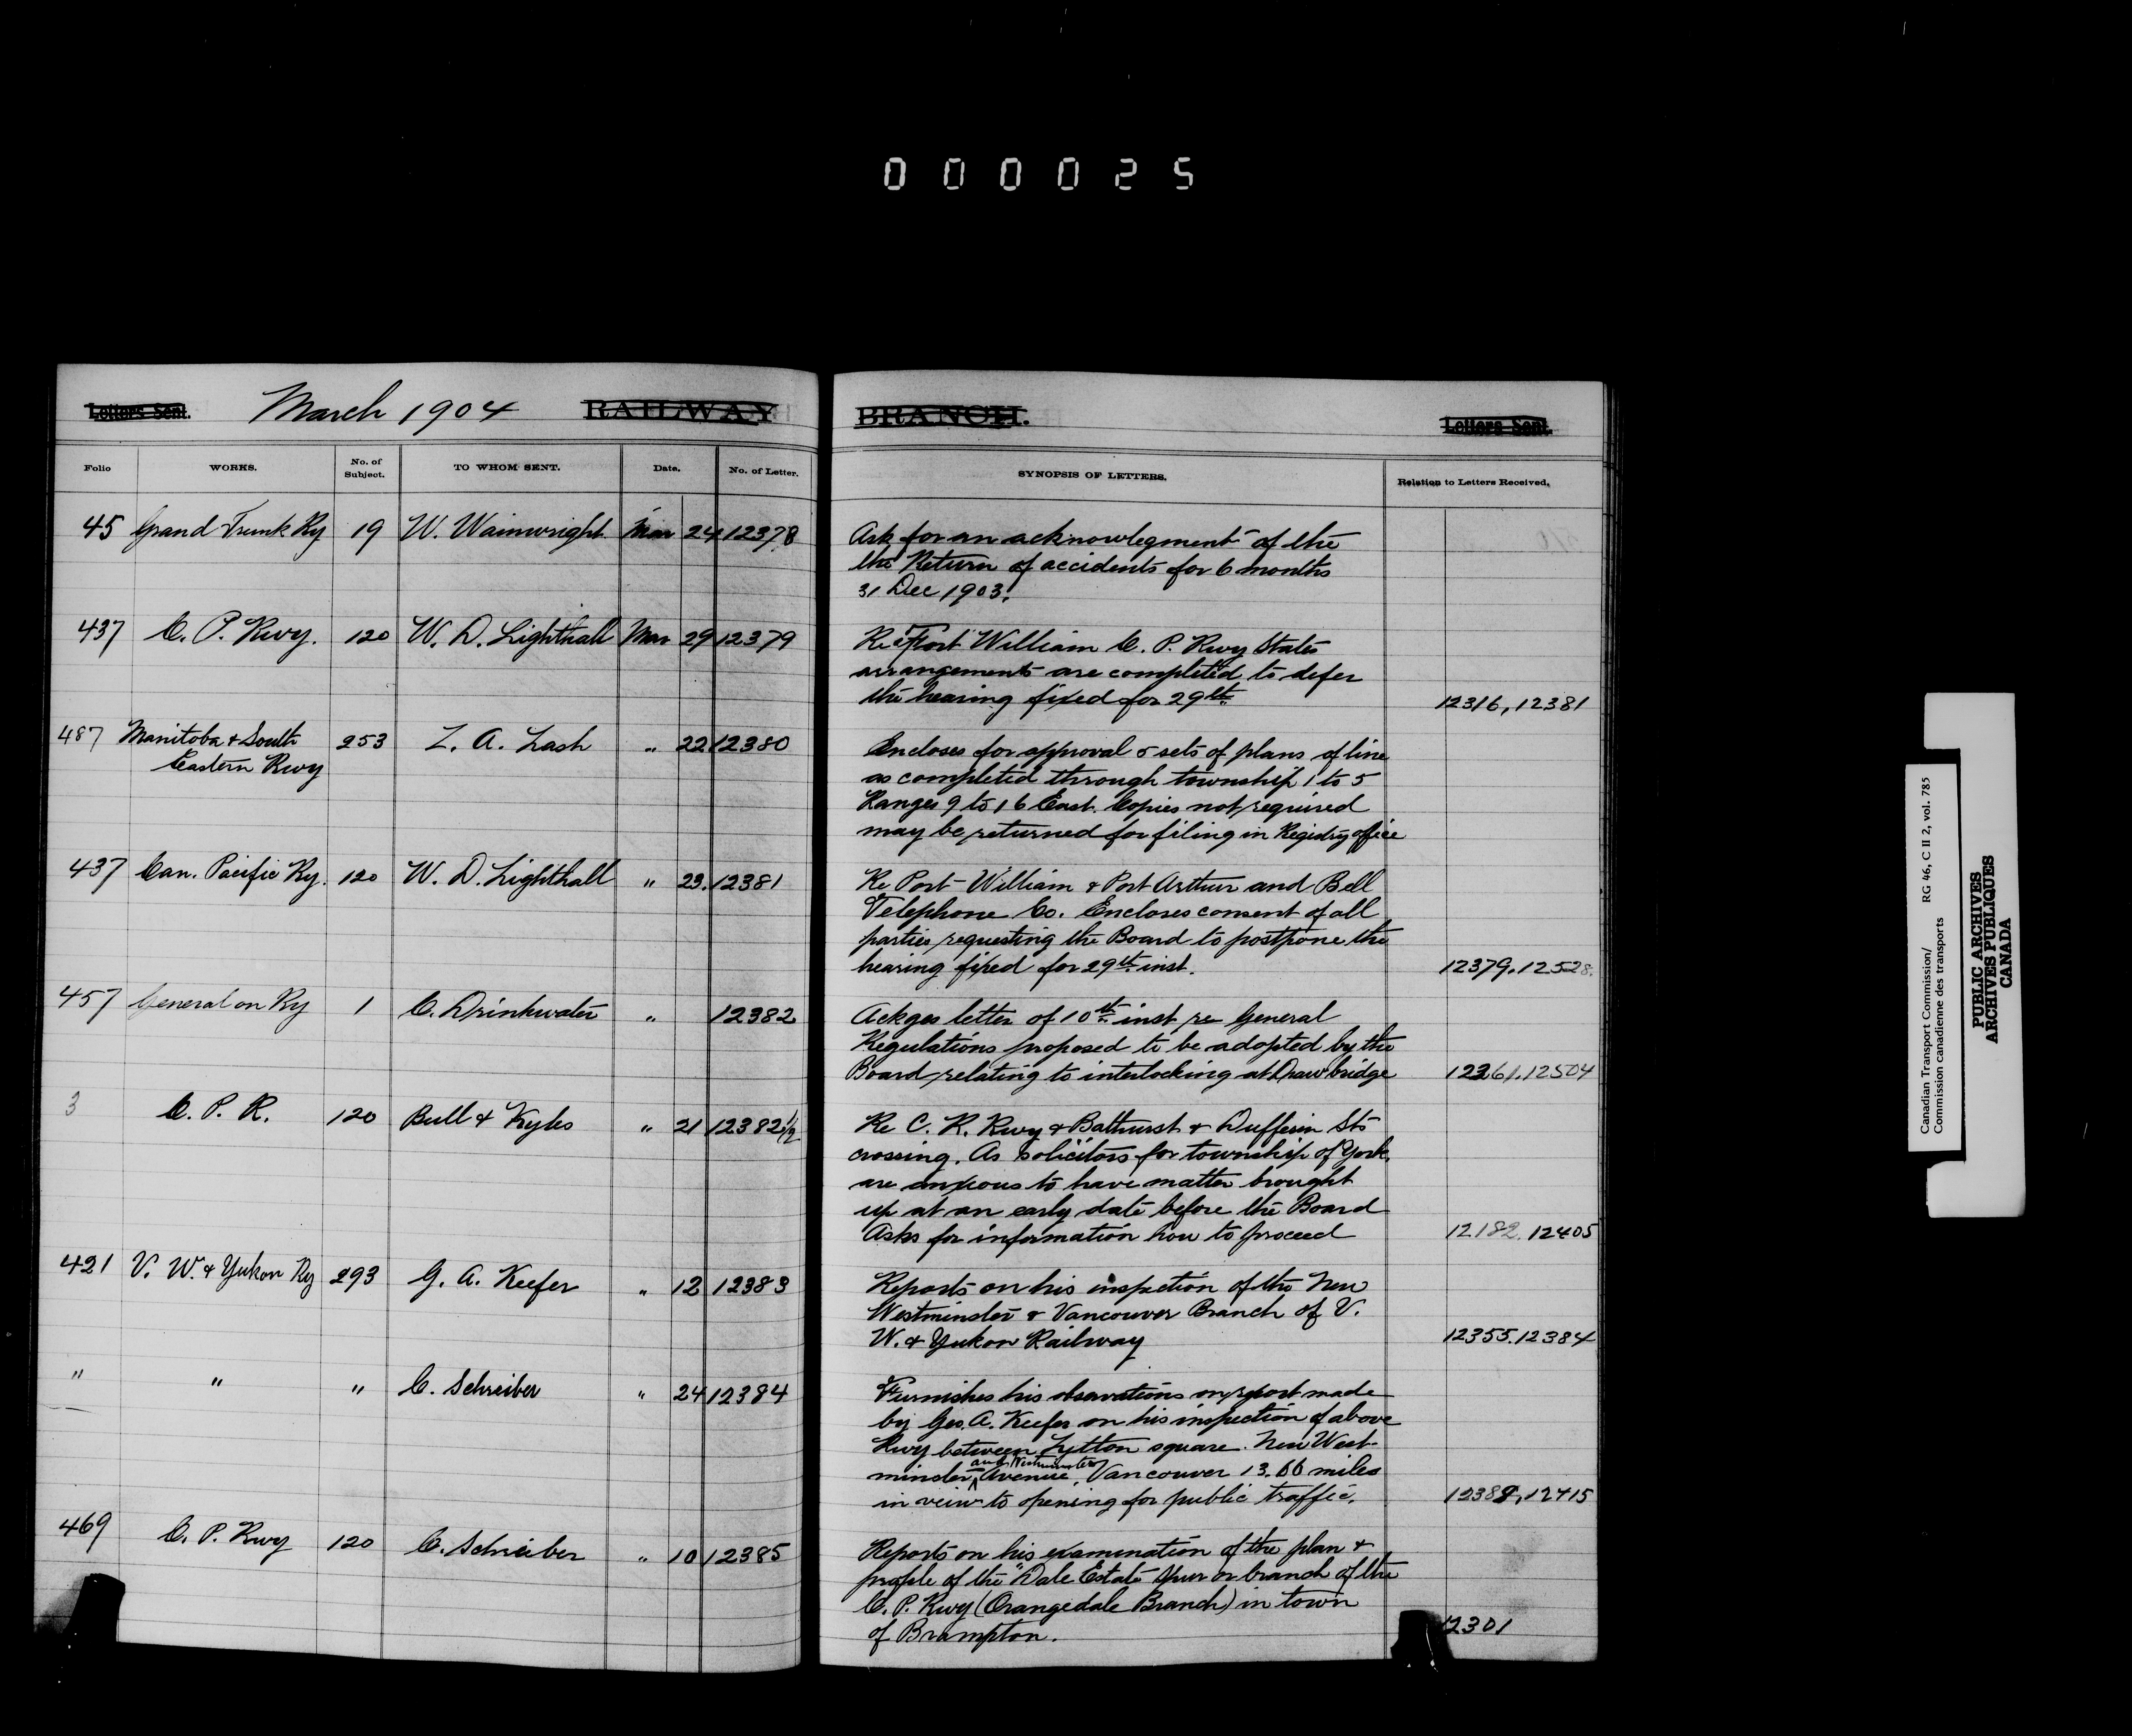 000025
Letters Sent. March 1904 RAILWAY BRANCH. Letters Sent.
Folio WORKS. No. of Subject. TO WHOM SENT. Date. No. of Letter. SYNOPSIS OF LETTERS. Relation to Letters Received.
45 Grand Trunk Ry 19 W. Wainwright Mar 24 12378 Ask for an acknowlegment of the
the Return of accidents for 6 months
31 Dec 1903.
437 C. P. Rwy. 120 W. D. Lighthall Mar 29 12379 Re Fort William C. P. Rwy States
arrangements are completed to defer
the hearing fixed for 29th. 12316, 12381
487 Manitoba & South 253 Z. A. Lash " 22 12380 Encloses for approval 5 sets of plans of line
Eastern Rwy as completed through township 1 to 5
Ranges 9 to 16 East. Copies not required
may be returned for filing in Registry office
437 Can. Pacific Ry. 120 W. D. Lighthall " 23. 12381 Re Port William & Port Arthur and Bell
Telephone Co. Encloses consent of all
parties requesting the Board to postpone the
hearing fixed for 29th inst. 12379, 12528.
457 General on Ry 1 C. Drinkwater " 12382 Ackges letter of 10th inst re General
Regulations proposed to be adopted by the
Board relating to interlocking at Drawbridge 12361. 12504
3 C. P. R. 120 Bull & Kyles " 21 12382½ Re C. R. Rwy & Bathurst & Dufferin Sts
crossing. As Solicitors for township of York,
are anxious to have matter brought
up at an early date before the Board
Asks for information how to proceed 12182. 12405
421 V. W. & Yukon Ry 293 G. A. Keefer " 12 12383 Reports on his inspection of the New
Westminster & Vancouver Branch of V.
W. & Yukon Railway 12355. 12384
" " " C. Schreiber " 24 12384 Furnishes his observations on report made
by Geo. A. Keefer on his inspection of above
Rwy between Lytton square. New West-
minster and Westminster Avenue, Vancouver 13.66 miles
in veiw to opening for public traffic. 12388, 12415
469 C. P. Rwy 120 C. Schreiber " 10 12385 Reports on his examination of the plan &
profile of the "Dale Estate spur or branch of the
C. P. Rwy (Orangedale Branch) in town
of Brampton. 12301
Canadian Transport Commission/ RG 46, C II 2, vol. 785
Commission canadienne des transports
PUBLIC ARCHIVES
ARCHIVES PUBLIQUES
CANADA